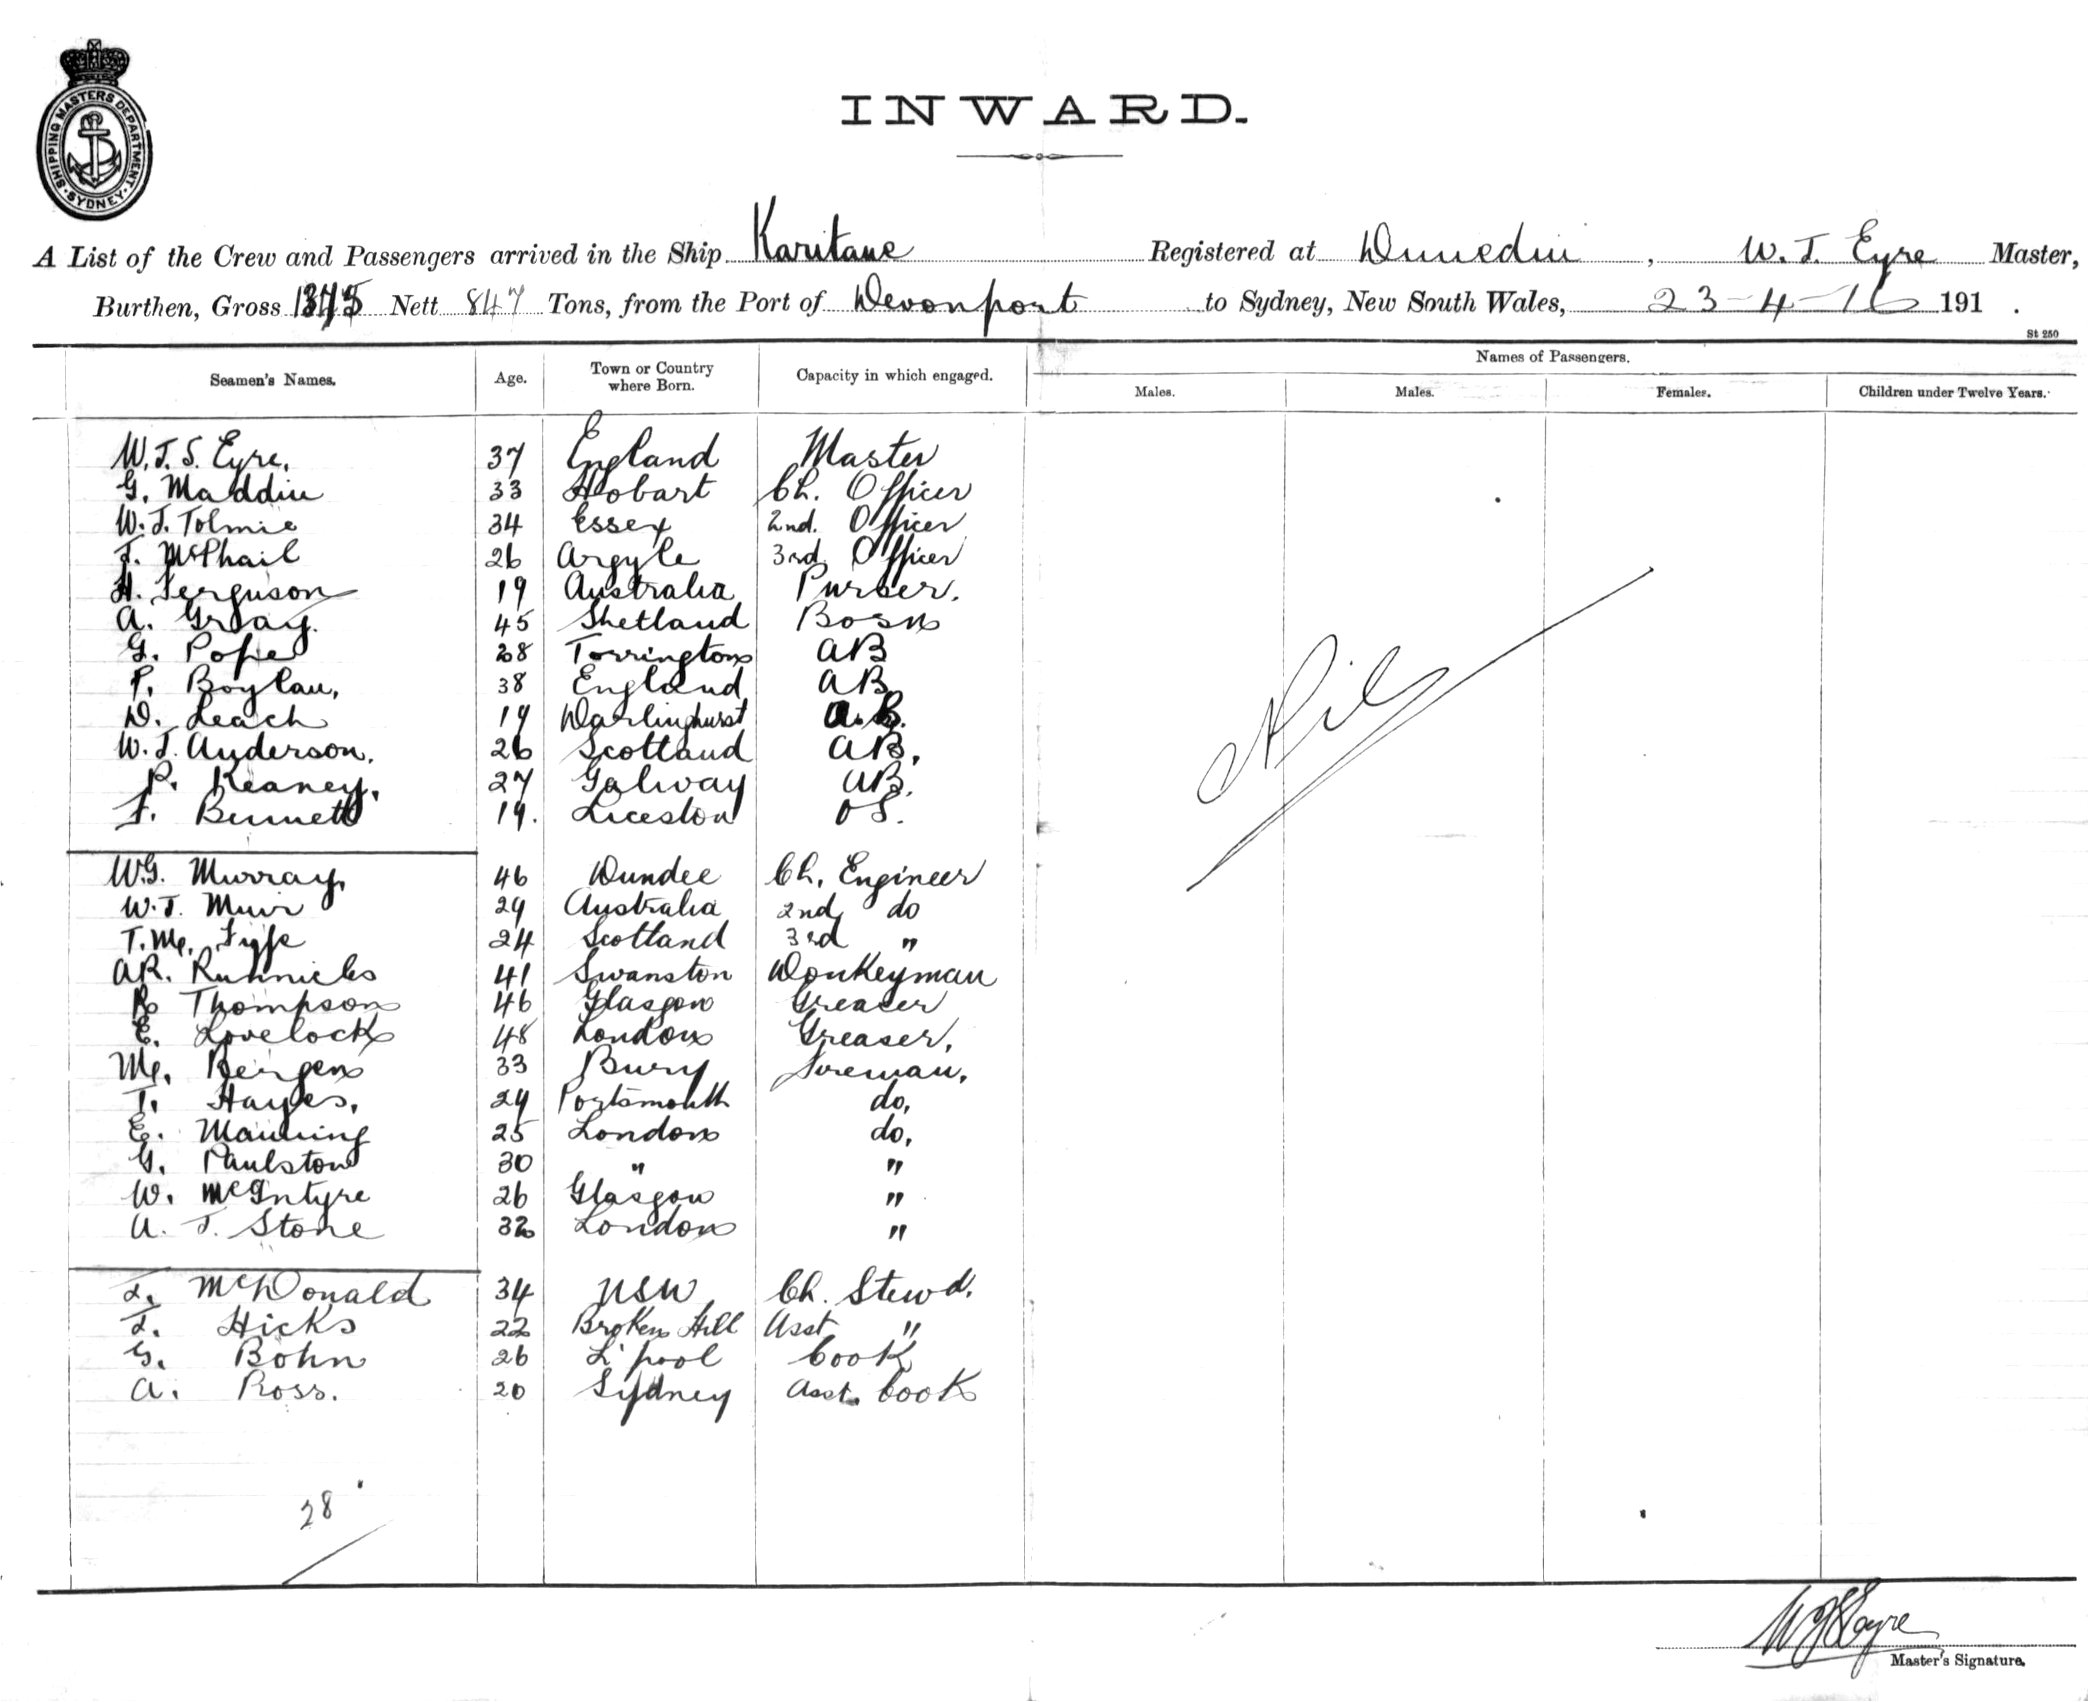 SHIPPING MASTERS DEPARTMENT. SYDNEY
INWARD.
A List of the Crew and Passengers arrived in the Ship Karitane Registered at Dunedin, W. J. Eyre Master,
Burthen, Gross Nett 847 Tons, from the Port of Devonport to Sydney, New South Wales, 23-4-16 191 .
St 250
Seamen's Names. Age. Town or Country where Born. Capacity in which engaged. Names of Passengers.
Males. Males. Females. Children under Twelve Years.
W. J. S. Eyre. 37 England Master
G. Maddin 33 Hobart Ch. Officer
W. J. Tolmie 34 Essex 2nd. Officer
J. McPhail 26 Argyle 3rd Officer
H. Ferguson 19 Australia Purser.
A. Gray. 45 Shetland Bosn
G. Pope 28 Torrington AB
P. Boylan, 38 England AB
D. Leach 19 Darlinghurst A.B.
W. J. Anderson. 26 Scotland AB.
P. Keaney. 27 Galway AB.
F. Bennett 19. L'ceston OS.
Nil
W.G. Murray. 46 Dundee Ch. Engineer
W. J. Muir 29 Australia 2nd do
T. M. Fyfe 24 Scotland 3rd "
A R. Runnicles 41 Swanston Donkeyman
R Thompson 46 Glasgow Greaser
E. Lovelock 48 London Greaser.
M. Bergen 33 Bury Fireman.
T. Hayes. 29 Portsmouth do.
E. Manning 25 London do.
G. Paulston 30 " "
W. McIntyre 26 Glasgow "
A. J. Stone 32 London "
J. McDonald 34 NSW Ch. Stewd.
J. Hicks 22 Broken Hill Asst "
G. Bohn 26 L'pool Cook
A. Ross. 20 Sydney Asst. Cook
28
W J S Eyre
Master's Signature.